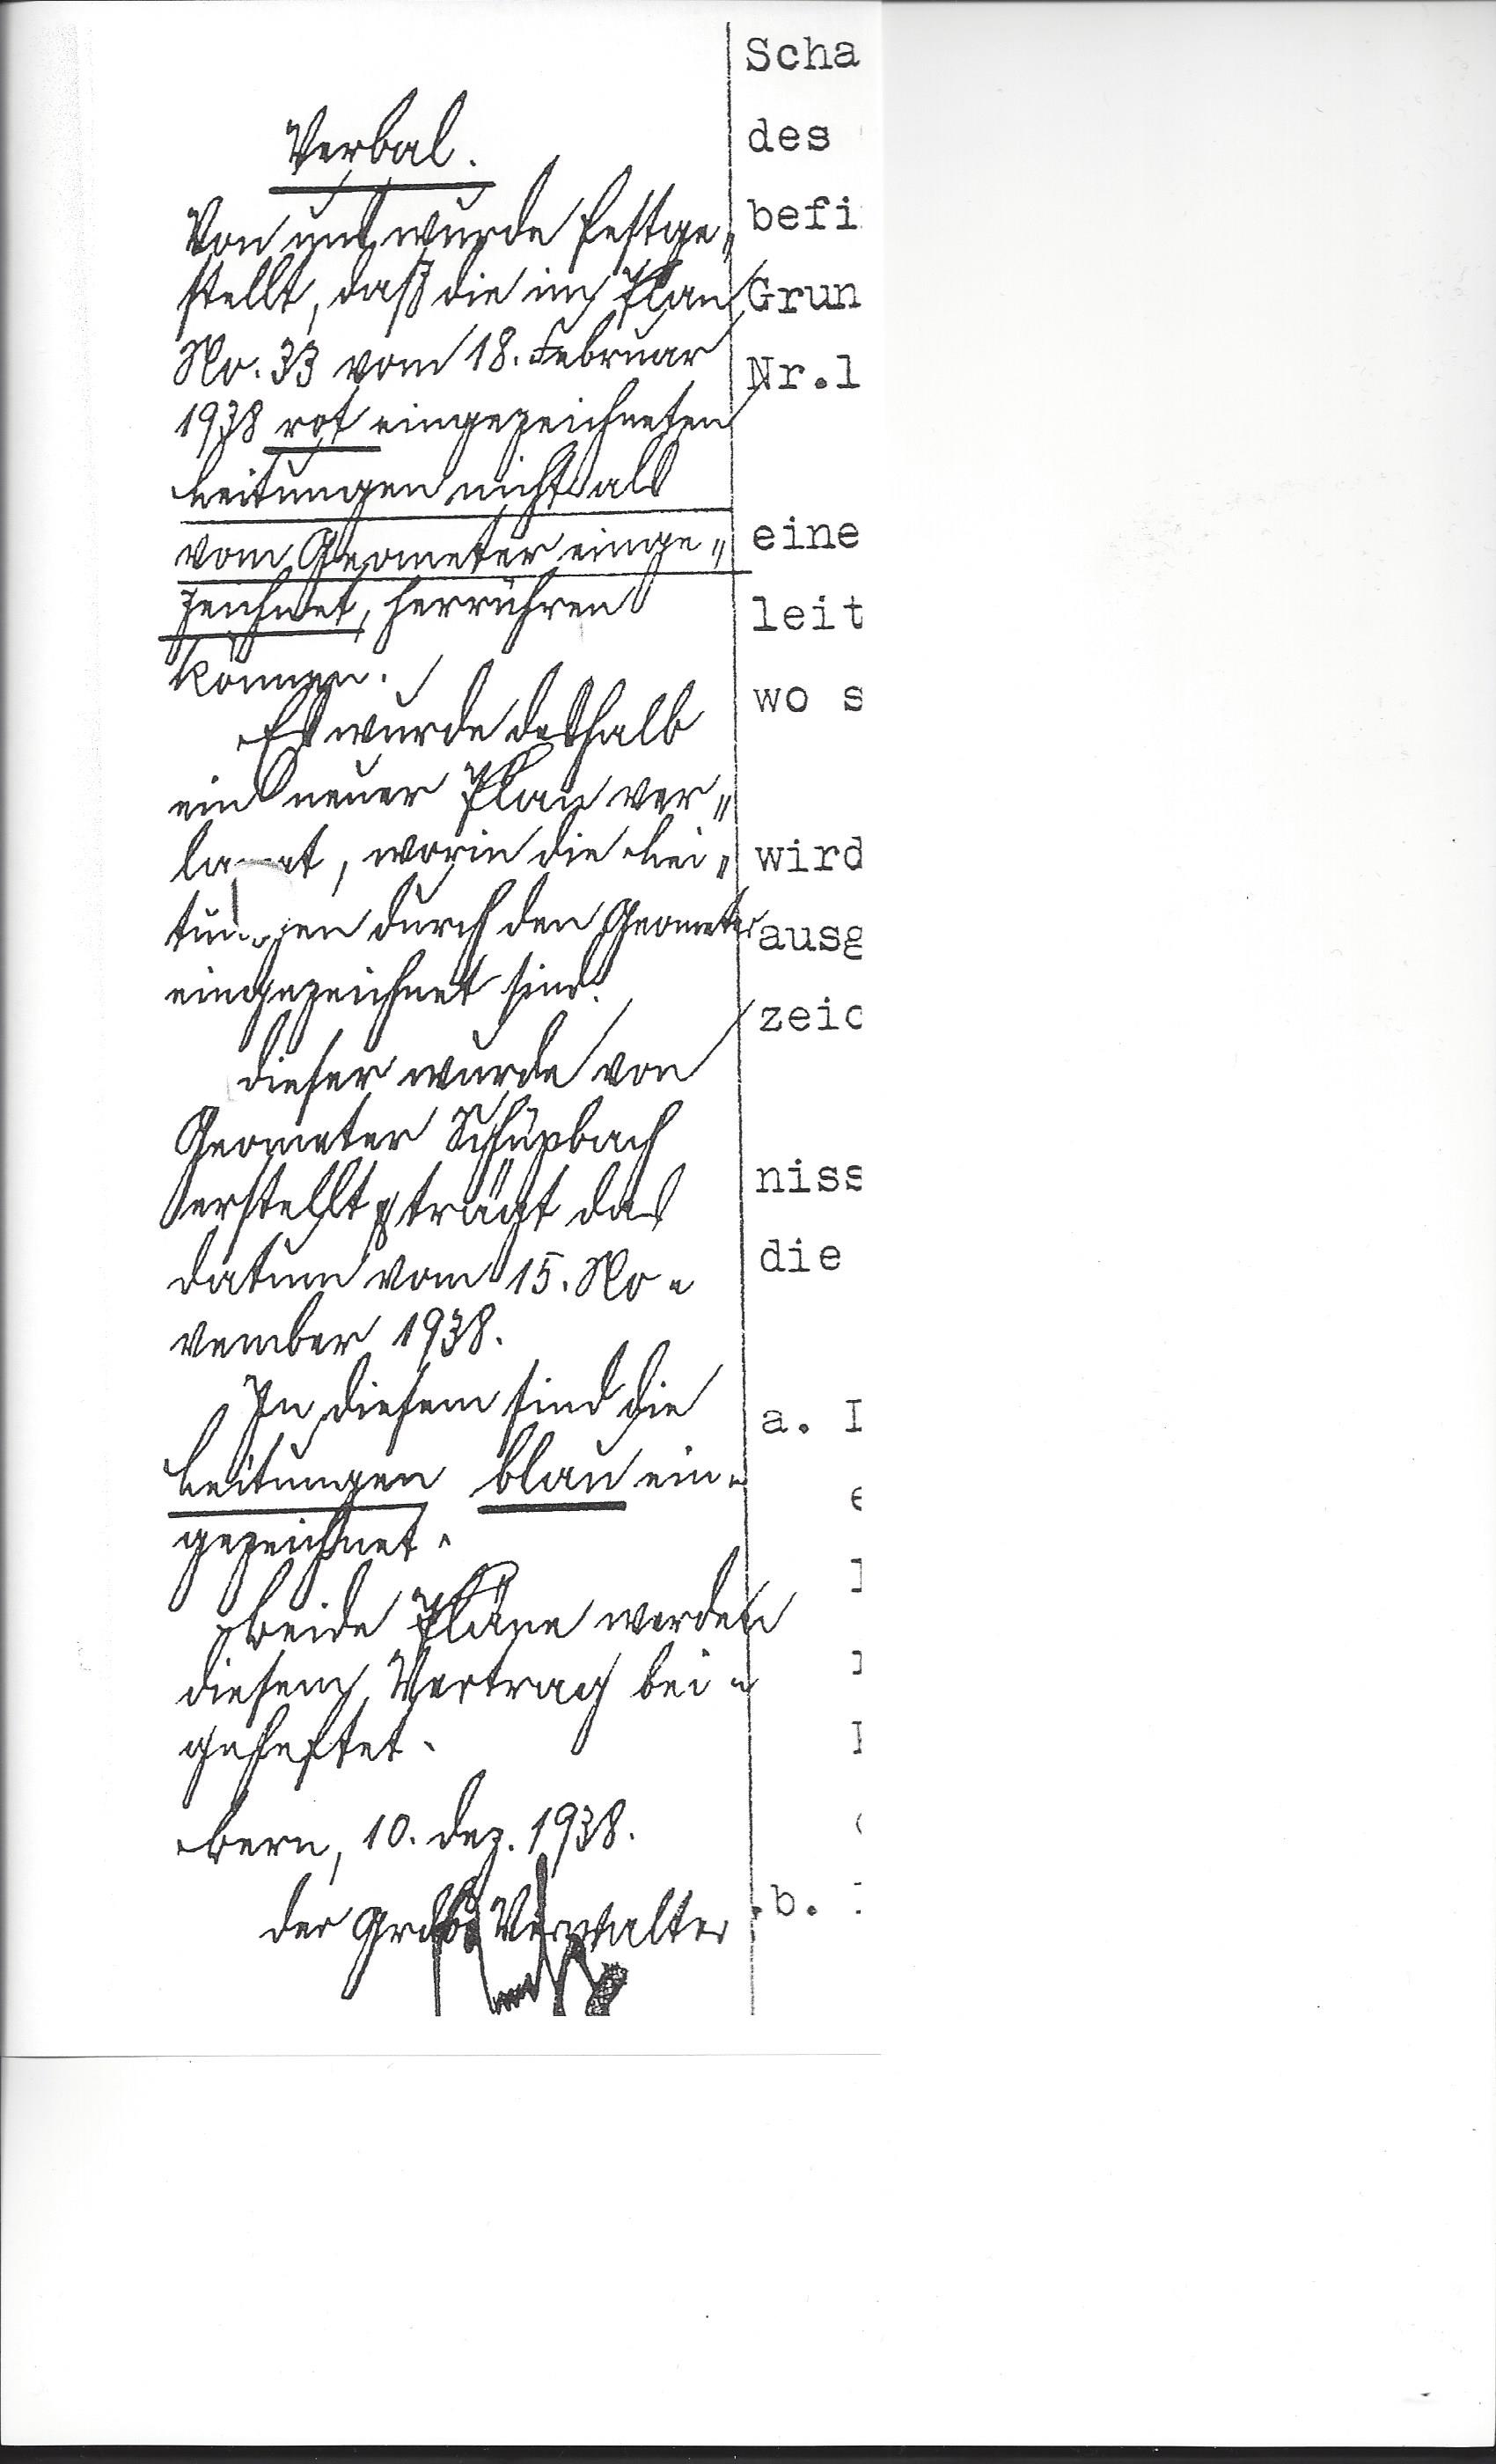 Verbal.
Von uns wurde festge„
stellt, daß die im Plan
No. 33 vom 18. Februar
1938 rot eingezeichneten
Leitungen nicht als
vom Geometer einge„
zeichnet, herrühren
können.
Es wurde deshalb
ein neuer Plan ver„
langt, worin die Lei„
tungen durch den Geometer
eingezeichnet sind.
Dieser wurde von
Geometer Schüpbach
erstellt & trägt das
Datum vom 15. No„
vember 1938.
In diesem sind die
Leitungen blau ein„
gezeichnet.
Beide Pläne werden
diesem Vertrag bei„
geheftet.
Bern, 10. Dez. 1938.
Der Verwalter
Scha
des
befi
Grun
Nr.1
eine
leit
wo s
wird
ausg
zeic
niss
die
a.
b.